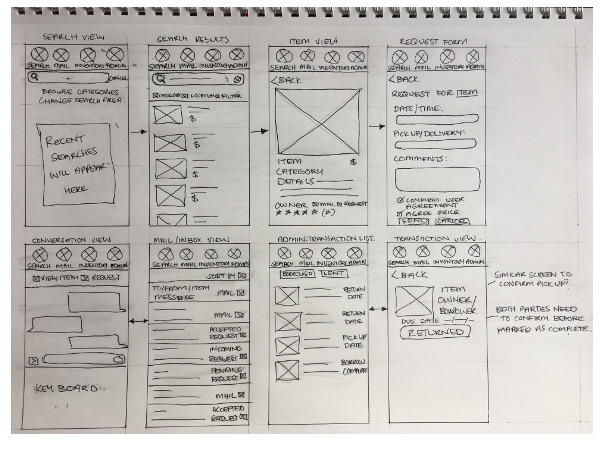 SEARCH VIEW
SEARCH MAIL INVENTORY ADMIN
CANCEL
BROWSE CATEGORIES
CHANGE SEARCH AREA
RECENT
SEARCHES
WILL APPEAR
HERE
SEARCH RESULTS
SEARCH MAIL INVENTORY ADMIN
CATEGORY LOCATION FILTER
$
$
$
$
ITEM VIEW
SEARCH MAIL INVENTORY ADMIN
< BACK
ITEM $
CATEGORY
DETAILS
OWNER MAIL REQUEST
REQUEST FORM
SEARCH MAIL INVENTORY ADMIN
< BACK
REQUEST FOR ITEM
DATE/TIME:
PICKUP/DELIVERY:
COMMENTS:
CONFIRM USER
AGREEMENT
AGREE PRICE
SEND CANCEL
CONVERSATION VIEW
SEARCH MAIL INVENTORY ADMIN
VIEW ITEM REQUEST
KEY BOARD
MAIL/INBOX VIEW
SEARCH MAIL INVENTORY ADMIN
SORT BY
TO/FROM/ITEM
MESSAGE MAIL
MAIL
ACCEPTED
REQUEST
INCOMING
REQUEST
PENDING
REQUEST
MAIL
ACCEPTED
REQUEST
ADMIN: TRANSACTION LIST
SEARCH MAIL INVENTORY ADMIN
BORROWED LENT
RETURN
DATE
RETURN
DATE
PICK UP
DATE
BORROW
COMPLETE
TRANSACTION VIEW
SEARCH MAIL INVENTORY ADMIN
< BACK
ITEM
OWNER/
BORROWER
DUE DATE -/-/-
RETURNED
SIMILAR SCREEN TO
CONFIRM PICK UP?
BOTH PARTIES NEED
TO CONFIRM BEFORE
MARKED AS COMPLETE.